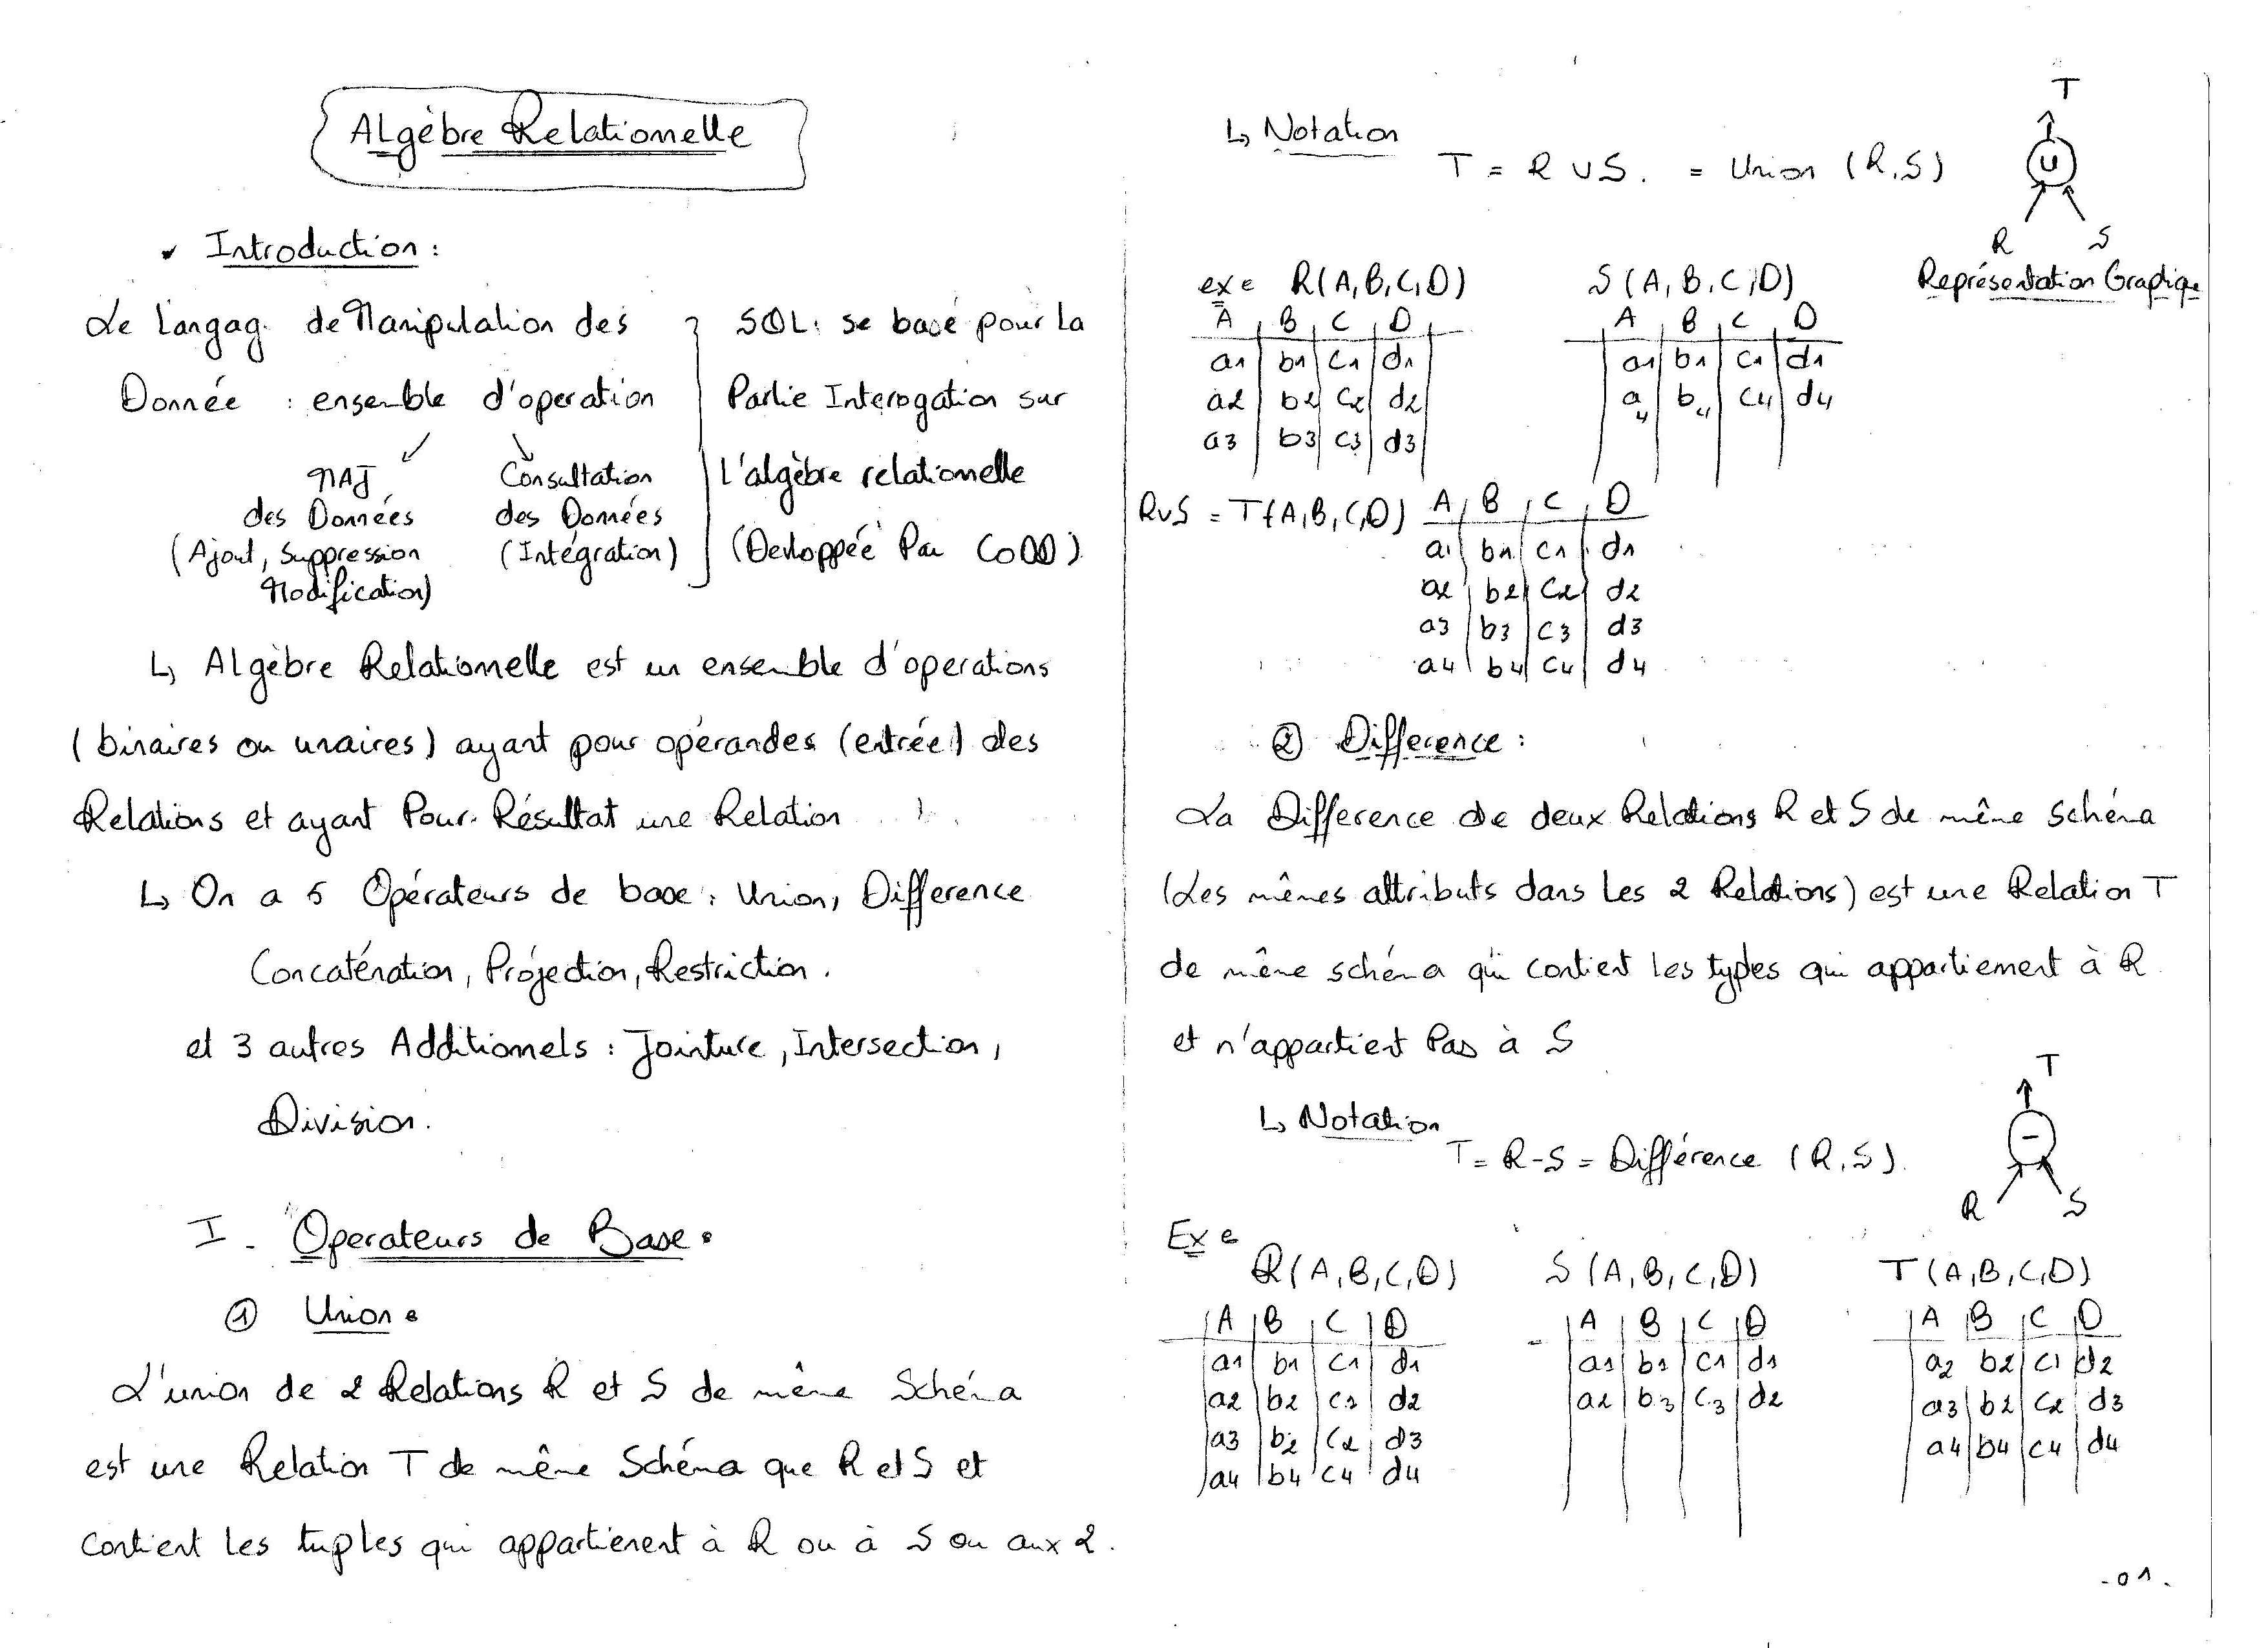 ALgèbre Relationelle
Introduction :
Le Langag. de Manipulation des
Donnée : ensemble d'operation
MAJ
des Données
(Ajout, Suppression
Modification)
Consultation
des Données
(Intégration)
SQL: se base pour La
Partie Interogation sur
L'algèbre relationelle
(Devloppée Par CODD)
↳ ALgèbre Relationnelle est un ensemble d'operations
(binaires ou unaires) ayant pour opérandes (entrée) des
Relations et ayant Pour Résultat une Relation
↳ On a 5 Opérateurs de base : Union, Difference
Concaténation, Projection, Restriction.
et 3 autres Additionnels : Jointure, Intersection,
Division.
I - Operateurs de Base :
① Union :
L'union de 2 Relations R et S de même Schéma
est une Relation T de même Schéma que R et S et
Contient Les tuples qui appartienent à R ou à S ou aux 2.
↳ Notation
T = R ∪ S. = Union (R,S)
T
∪
R S
Représentation Graphique
exe R(A,B,C,D)
A B C D
a1 b1 c1 d1
a2 b2 c2 d2
a3 b3 c3 d3
S(A,B,C,D)
A B C D
a1 b1 c1 d1
a4 b4 c4 d4
R∪S = T(A,B,C,D)
A B C D
a1 b1 c1 d1
a2 b2 c2 d2
a3 b3 c3 d3
a4 b4 c4 d4
② Difference :
La Difference de deux Relations R et S de même Schéma
(Les mêmes attributs dans Les 2 Relations) est une Relation T
de même schéma qui contient Les types qui appartiennent à R
et n'appartient Pas à S
↳ Notation
T = R-S = Différence (R,S).
T
-
R S
Exe
R(A,B,C,D)
A B C D
a1 b1 c1 d1
a2 b2 c1 d2
a3 b2 c2 d3
a4 b4 c4 d4
S(A,B,C,D)
A B C D
a1 b1 c1 d1
a2 b3 c3 d2
T(A,B,C,D)
A B C D
a2 b2 c1 d2
a3 b2 c2 d3
a4 b4 c4 d4
-01-